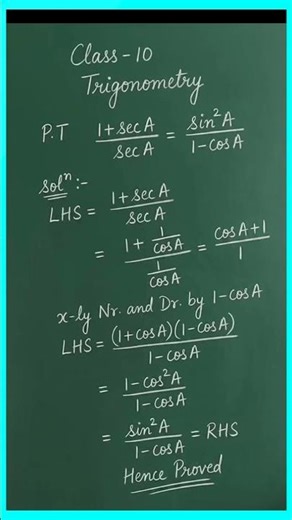 Class - 10
Trigonometry
P.T (1 + sec A)/(sec A) = (sin²A)/(1 - cos A)
Solⁿ :-
LHS = (1 + sec A)/(sec A)
= (1 + 1/(cos A))/(1/(cos A)) = (cos A + 1)/1
x-ly Nr. and Dr. by 1 - cos A
LHS = ((1 + cos A)(1 - cos A))/(1 - cos A)
= (1 - cos²A)/(1 - cos A)
= (sin²A)/(1 - cos A) = RHS
Hence Proved